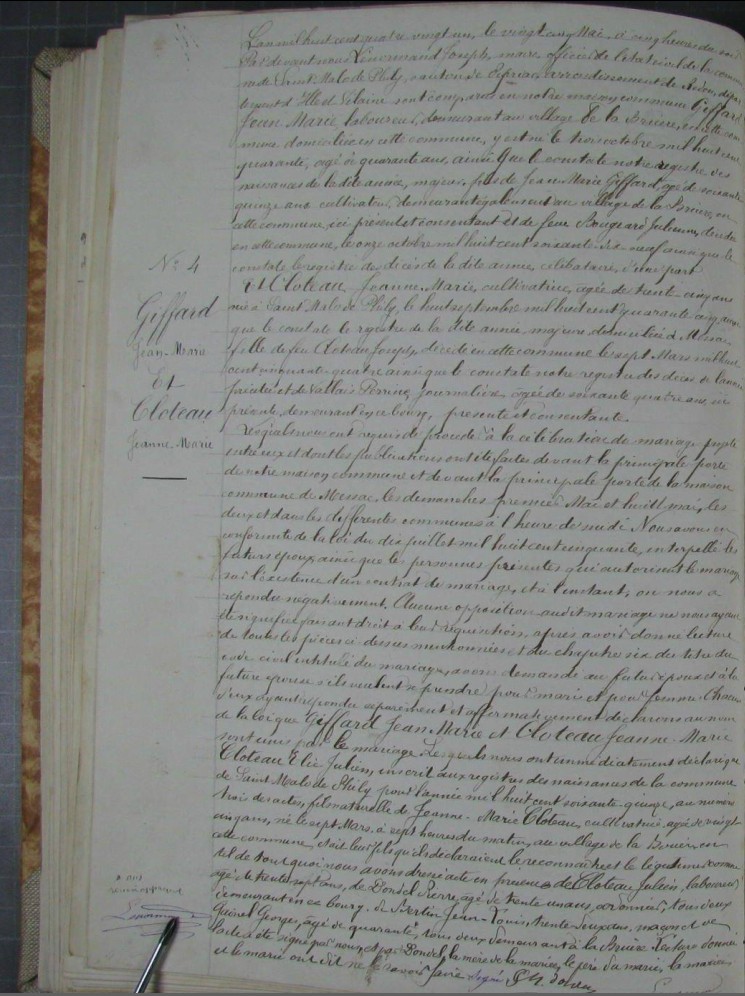 L'an mil huit cent quatre vingt un, le vingt cinq Mai, à cinq heures du soir
Par devant nous Joseph, maire officier de l'état civil de la commune
de Saint Malo de Phily, canton de Pipriac, arrondissement de Redon, dépar
tement d'Ille et Vilaine sont comparus en notre maison commune Giffard
Jean Marie, laboureur, demeurant au village de la Brière, en cette com
mune domicilié en cette commune, y est né le trois octobre mil huit cent
quarante, âgé de quarante ans, ainsi que le constate notre registre des
naissances de la dite année, majeur, fils de Jean Marie Giffard, âgé de soixante
quinze ans cultivateur, demeurant également au village de la Brière, en
cette commune, ici présent et consentant et de feue Julienne, décédée
en cette commune, le onze octobre mil huit cent soixante dix neuf ainsi que le
constate le registre des décès de la dite année, célibataire, d'une part
Et Cloteau Jeanne Marie, cultivatrice, âgée de trente cinq ans
née à Saint Malo de Phily, le huit septembre mil huit cent quarante cinq, ainsi
que le constate le registre de la dite année, majeure, domiciliée à Messac
fille de feu Cloteau Joseph, décédé en cette commune le sept Mars mil huit
cent cinquante quatre ainsi que le constate notre registre des décès de l'année
précitée et de Vallais Perrine, journalière, âgée de soixante quatre ans, ici
présente, demeurant en ce bourg, présente et consentante.
Lesquels nous ont requis de procéder à la célébration du mariage projeté
entre eux et dont les publications ont été faites devant la principale porte
de notre maison commune et devant la principale porte de la maison
commune de Messac, les dimanches premier Mai et huit mai, les
deux et dans les différentes communes à l'heure de midi. Nous avons en
conformité de la loi du dix juillet mil huit cent cinquante, interpellé les
futurs époux ainsi que les personnes présentes qui autorisent le mariage
sur l'existence d'un contrat de mariage, et à l'instant, on nous a
répondu négativement. Aucune opposition audit mariage ne nous ayant
été signifiée faisant droit à leur réquisition, après avoir donné lecture
de toutes les pièces ci-dessus mentionnées et du chapitre six du titre du
code civil intitulé du mariage, avons demandé au futur époux et à la
future épouse s'ils veulent se prendre pour mari et pour femme. Chacun
d'eux ayant répondu séparément et affirmativement déclarons au nom
de la loi que Giffard Jean Marie et Cloteau Jeanne-Marie
sont unis par le mariage. Lesquels nous ont immédiatement déclaré que
Cloteau Elie Julien, inscrit aux registres des naissances de la commune
de Saint Malo de Phily pour l'année mil huit cent soixante quinze, au numéro
trois des actes, fils naturel de Jeanne-Marie Cloteau, cultivatrice, âgée de vingt
cinq ans, né le sept Mars à sept heures du matin, au village de la Brière, en
cette commune, était leur fils qu'ils déclaraient le reconnaître et le légitimer comme
tel de tout quoi nous avons dressé acte en présence de Cloteau Julien, laboureur
âgé de trente sept ans, de Pondel Pierre, âgé de trente un ans, tous deux
demeurant en ce bourg, de Bertin Jean-Louis, trente deux ans, maçon et de
Georges, âgé de quarante, tous deux demeurant à la Brière. Lecture donnée
l'acte a été signé par nous, et par Pondel, la mère de la mariée, le père du marié, la mariée
et le marié ont dit ne le savoir faire
N° 4
Giffard
Jean-Marie
Et
Cloteau
Jeanne-Marie